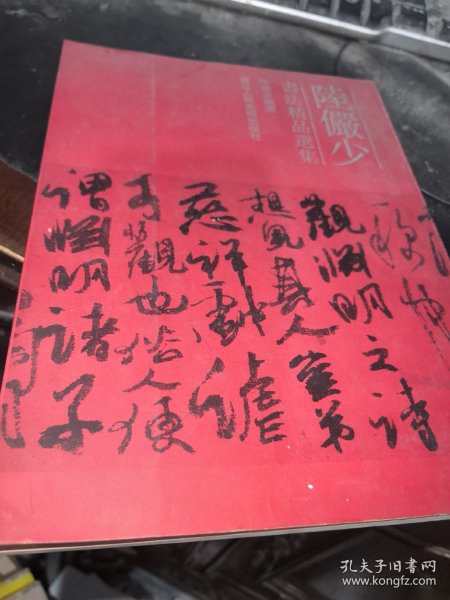 陸儼少
書法精品選集
觀淵明之詩
想見其人豈弟
慈祥戲謔
可觀也俗人便
謂淵明諸子
孔夫子旧书网
www.kongfz.com